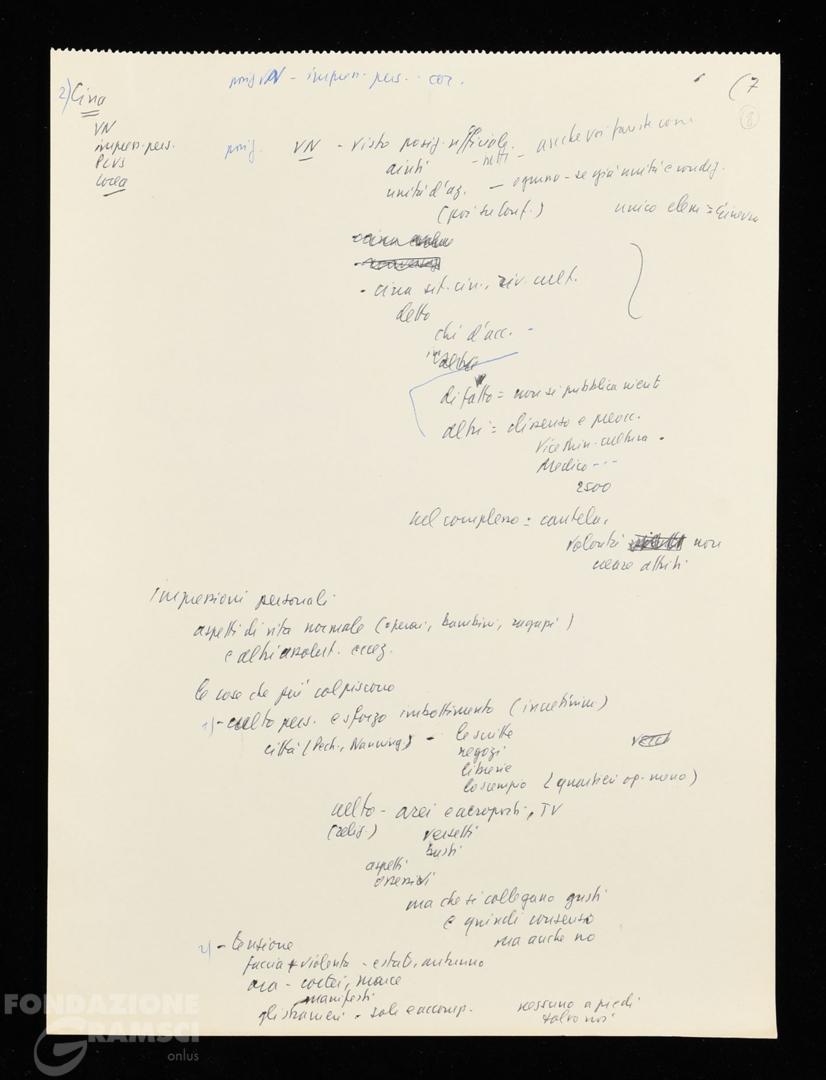 posiz VN - impress. pers. - cor.
(7
2) Cina
8
VN
impress. pers.
PCUS
Corea
posiz. VN - visto posiz. ufficiale - tutti - anche voi
aiuti
unità d'az. - ognuno - se già unità e condiz.
(poi su Conf.) unico elem = Ginevra
- Cina sit. in., riv. cult.
detto
chi d'acc. -
di fatto = non si pubblica nient
altri = dissenso e preocc.
Vice Min. cultura.
Medico - - -
2500
nel complesso = cautela,
volontà non
creare attriti
Impressioni personali
aspetti di vita normale (operai, bambini, ragazzi)
e altri assolut. eccez.
le cose che più colpiscono
1) - culto pers. e sforzo imbottimento (incretinim)
città (Pech., Nanning) - le scritte
negozi
librerie
lo scempio (quartieri op. meno)
culto - aerei e aeroporti, TV
(relig.) versetti
busti
aspetti
ossessivi
ma che si collegano gusti
e quindi consenso
ma anche no
2) - Tensione
faccia + violenta - estate, autunno
ora - cortei, marce
manifesti
gli stranieri - sale e accomp. nessuno a piedi
salvo noi
FONDAZIONE
GRAMSCI
onlus